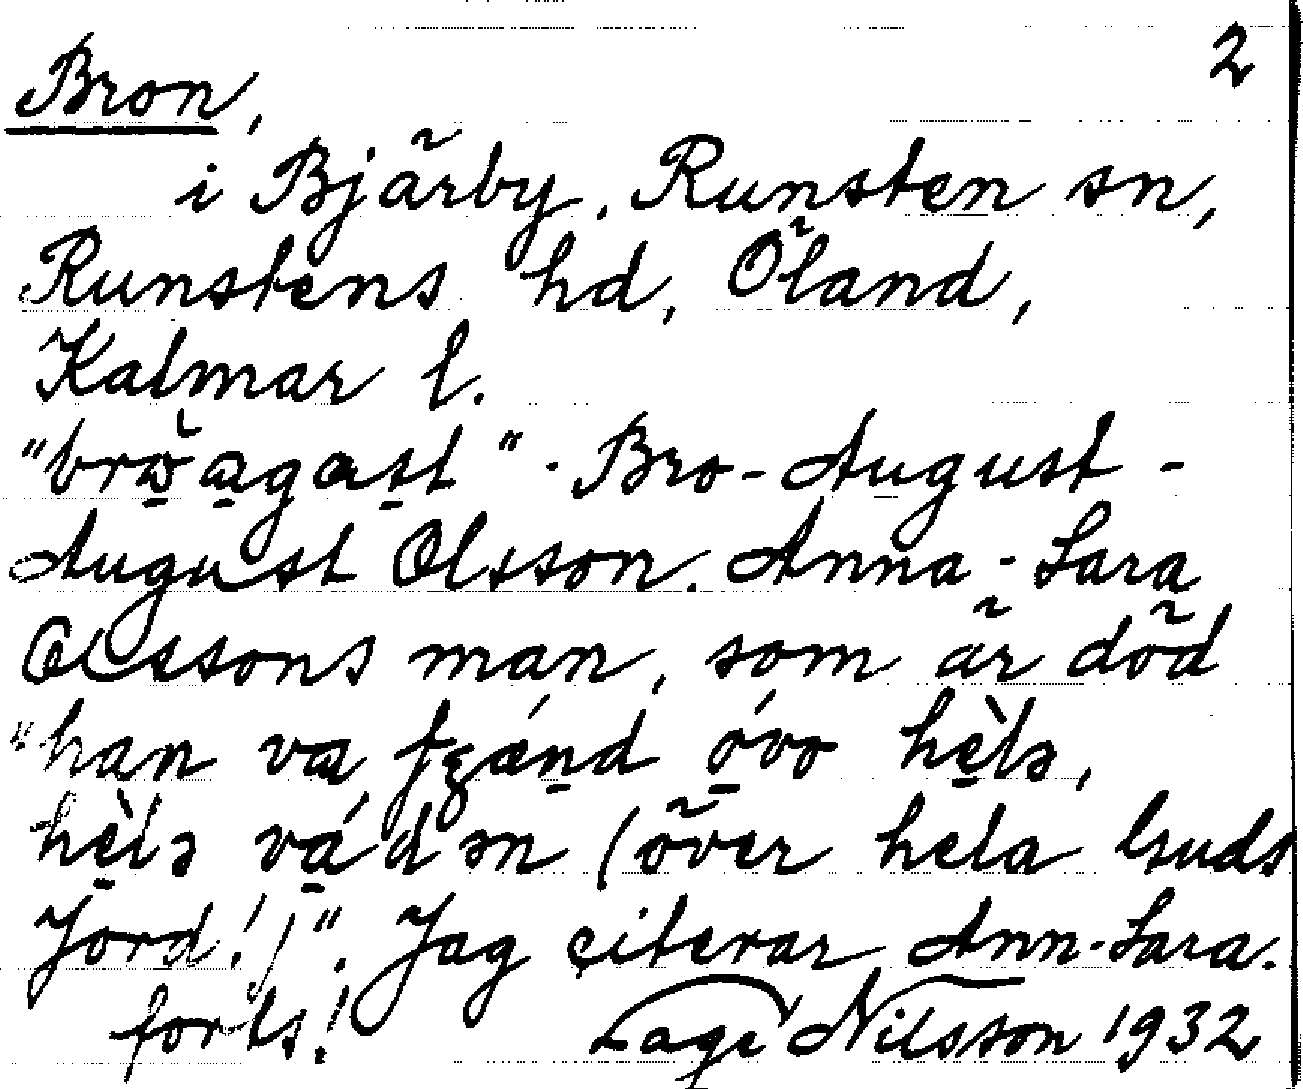 2
Bron,
i Bjärby, Runsten sn,
Runstens hd, Öland,
Kalmar l.
"brὼ̠a̠gas̠t". Bro-August -
August Olsson. Anna-Sara
Olssons man, som är död
"han va ʃʒǽn̠d ó̠vo hè̠lə,
hè̠lə vá̠dən (över hela Guds
Jord!)". Jag citerar Ann-Sara.
forts! Lage Nilsson 1932